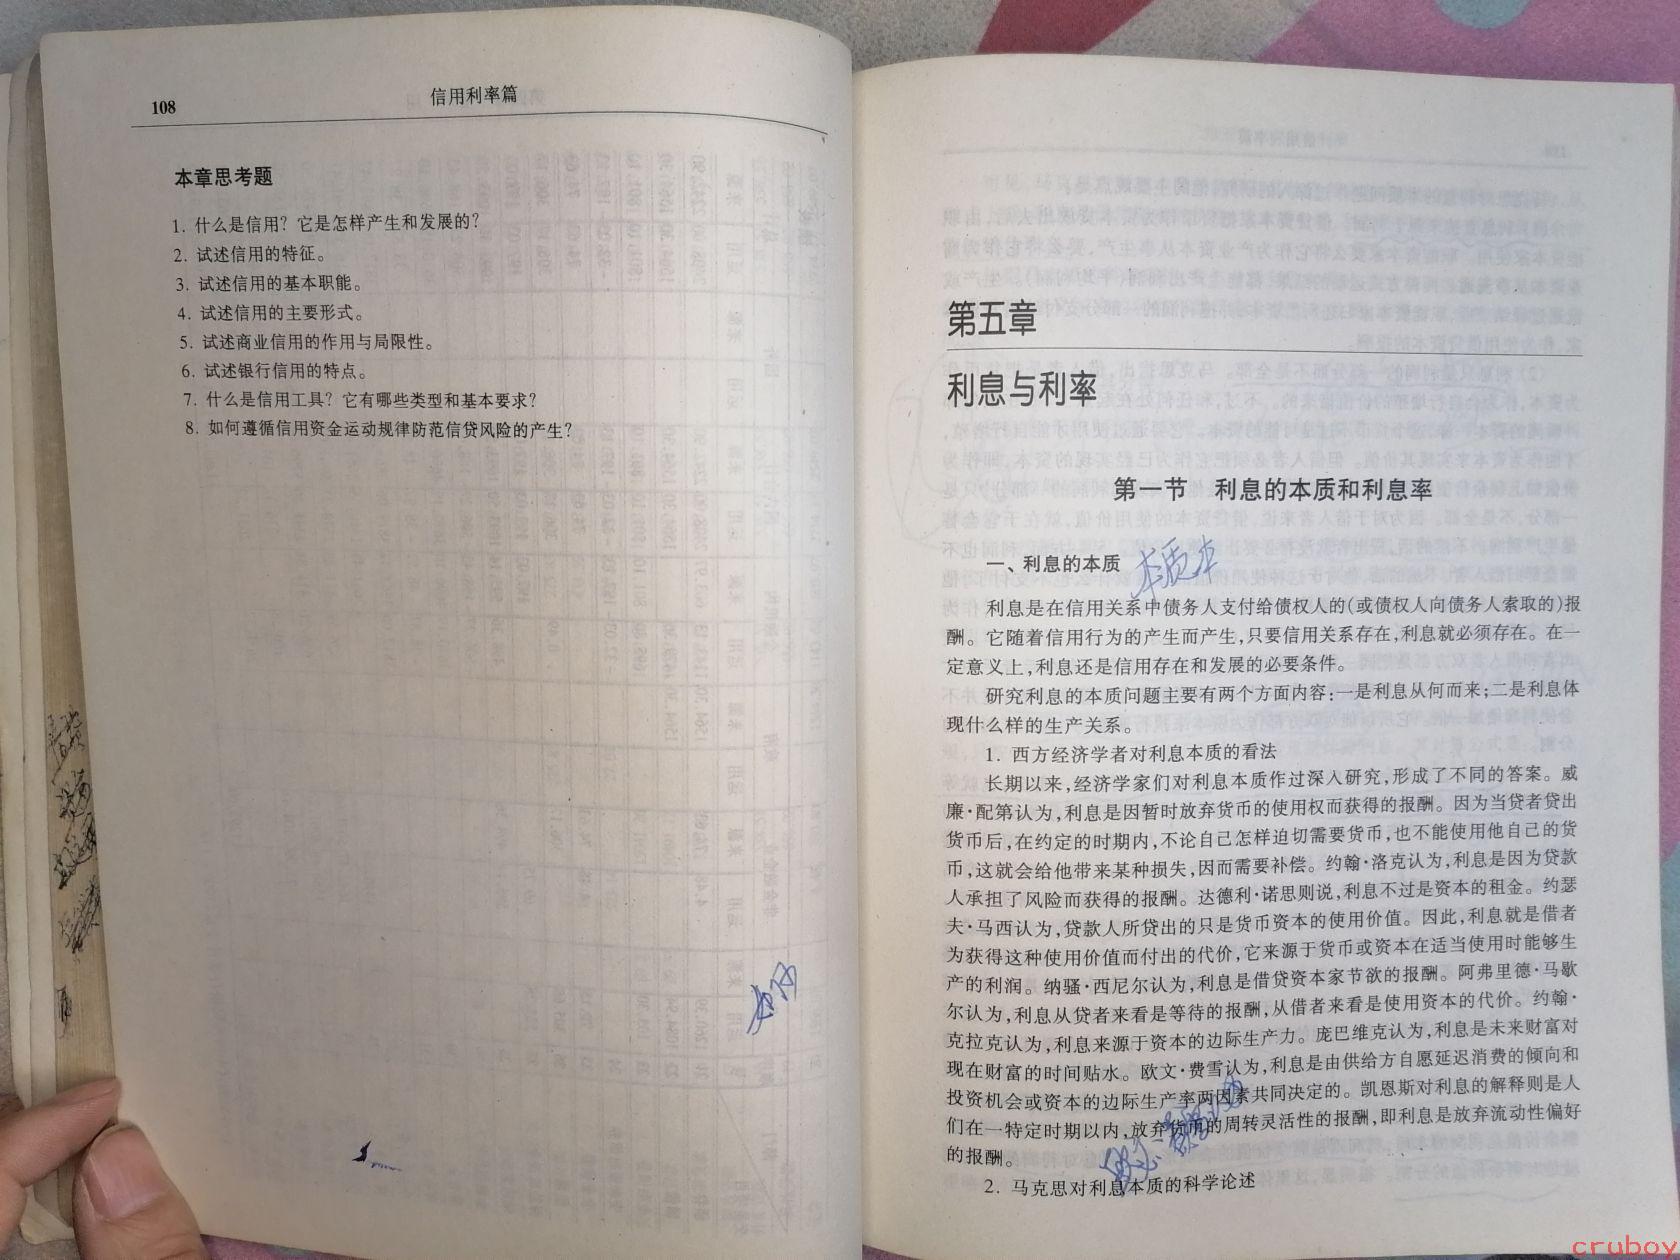 108
信用利率篇
本章思考题
1. 什么是信用？它是怎样产生和发展的？
2. 试述信用的特征。
3. 试述信用的基本职能。
4. 试述信用的主要形式。
5. 试述商业信用的作用与局限性。
6. 试述银行信用的特点。
7. 什么是信用工具？它有哪些类型和基本要求？
8. 如何遵循信用资金运动规律防范信贷风险的产生？
第五章
利息与利率
第一节 利息的本质和利息率
一、利息的本质
利息是在信用关系中债务人支付给债权人的(或债权人向债务人索取的)报
酬。它随着信用行为的产生而产生,只要信用关系存在,利息就必须存在。在一
定意义上,利息还是信用存在和发展的必要条件。
研究利息的本质问题主要有两个方面内容:一是利息从何而来;二是利息体
现什么样的生产关系。
1. 西方经济学者对利息本质的看法
长期以来,经济学家们对利息本质作过深入研究,形成了不同的答案。威
廉·配第认为,利息是因暂时放弃货币的使用权而获得的报酬。因为当贷者贷出
货币后,在约定的时期内,不论自己怎样迫切需要货币,也不能使用他自己的货
币,这就会给他带来某种损失,因而需要补偿。约翰·洛克认为,利息是因为贷款
人承担了风险而获得的报酬。达德利·诺思则说,利息不过是资本的租金。约瑟
夫·马西认为,贷款人所贷出的只是货币资本的使用价值。因此,利息就是借者
为获得这种使用价值而付出的代价,它来源于货币或资本在适当使用时能够生
产的利润。纳骚·西尼尔认为,利息是借贷资本家节欲的报酬。阿弗里德·马歇
尔认为,利息从贷者来看是等待的报酬,从借者来看是使用资本的代价。约翰·
克拉克认为,利息来源于资本的边际生产力。庞巴维克认为,利息是未来财富对
现在财富的时间贴水。欧文·费雪认为,利息是由供给方自愿延迟消费的倾向和
投资机会或资本的边际生产率两因素共同决定的。凯恩斯对利息的解释则是人
们在一特定时期以内,放弃货币的周转灵活性的报酬,即利息是放弃流动性偏好
的报酬。
2. 马克思对利息本质的科学论述
cruboy